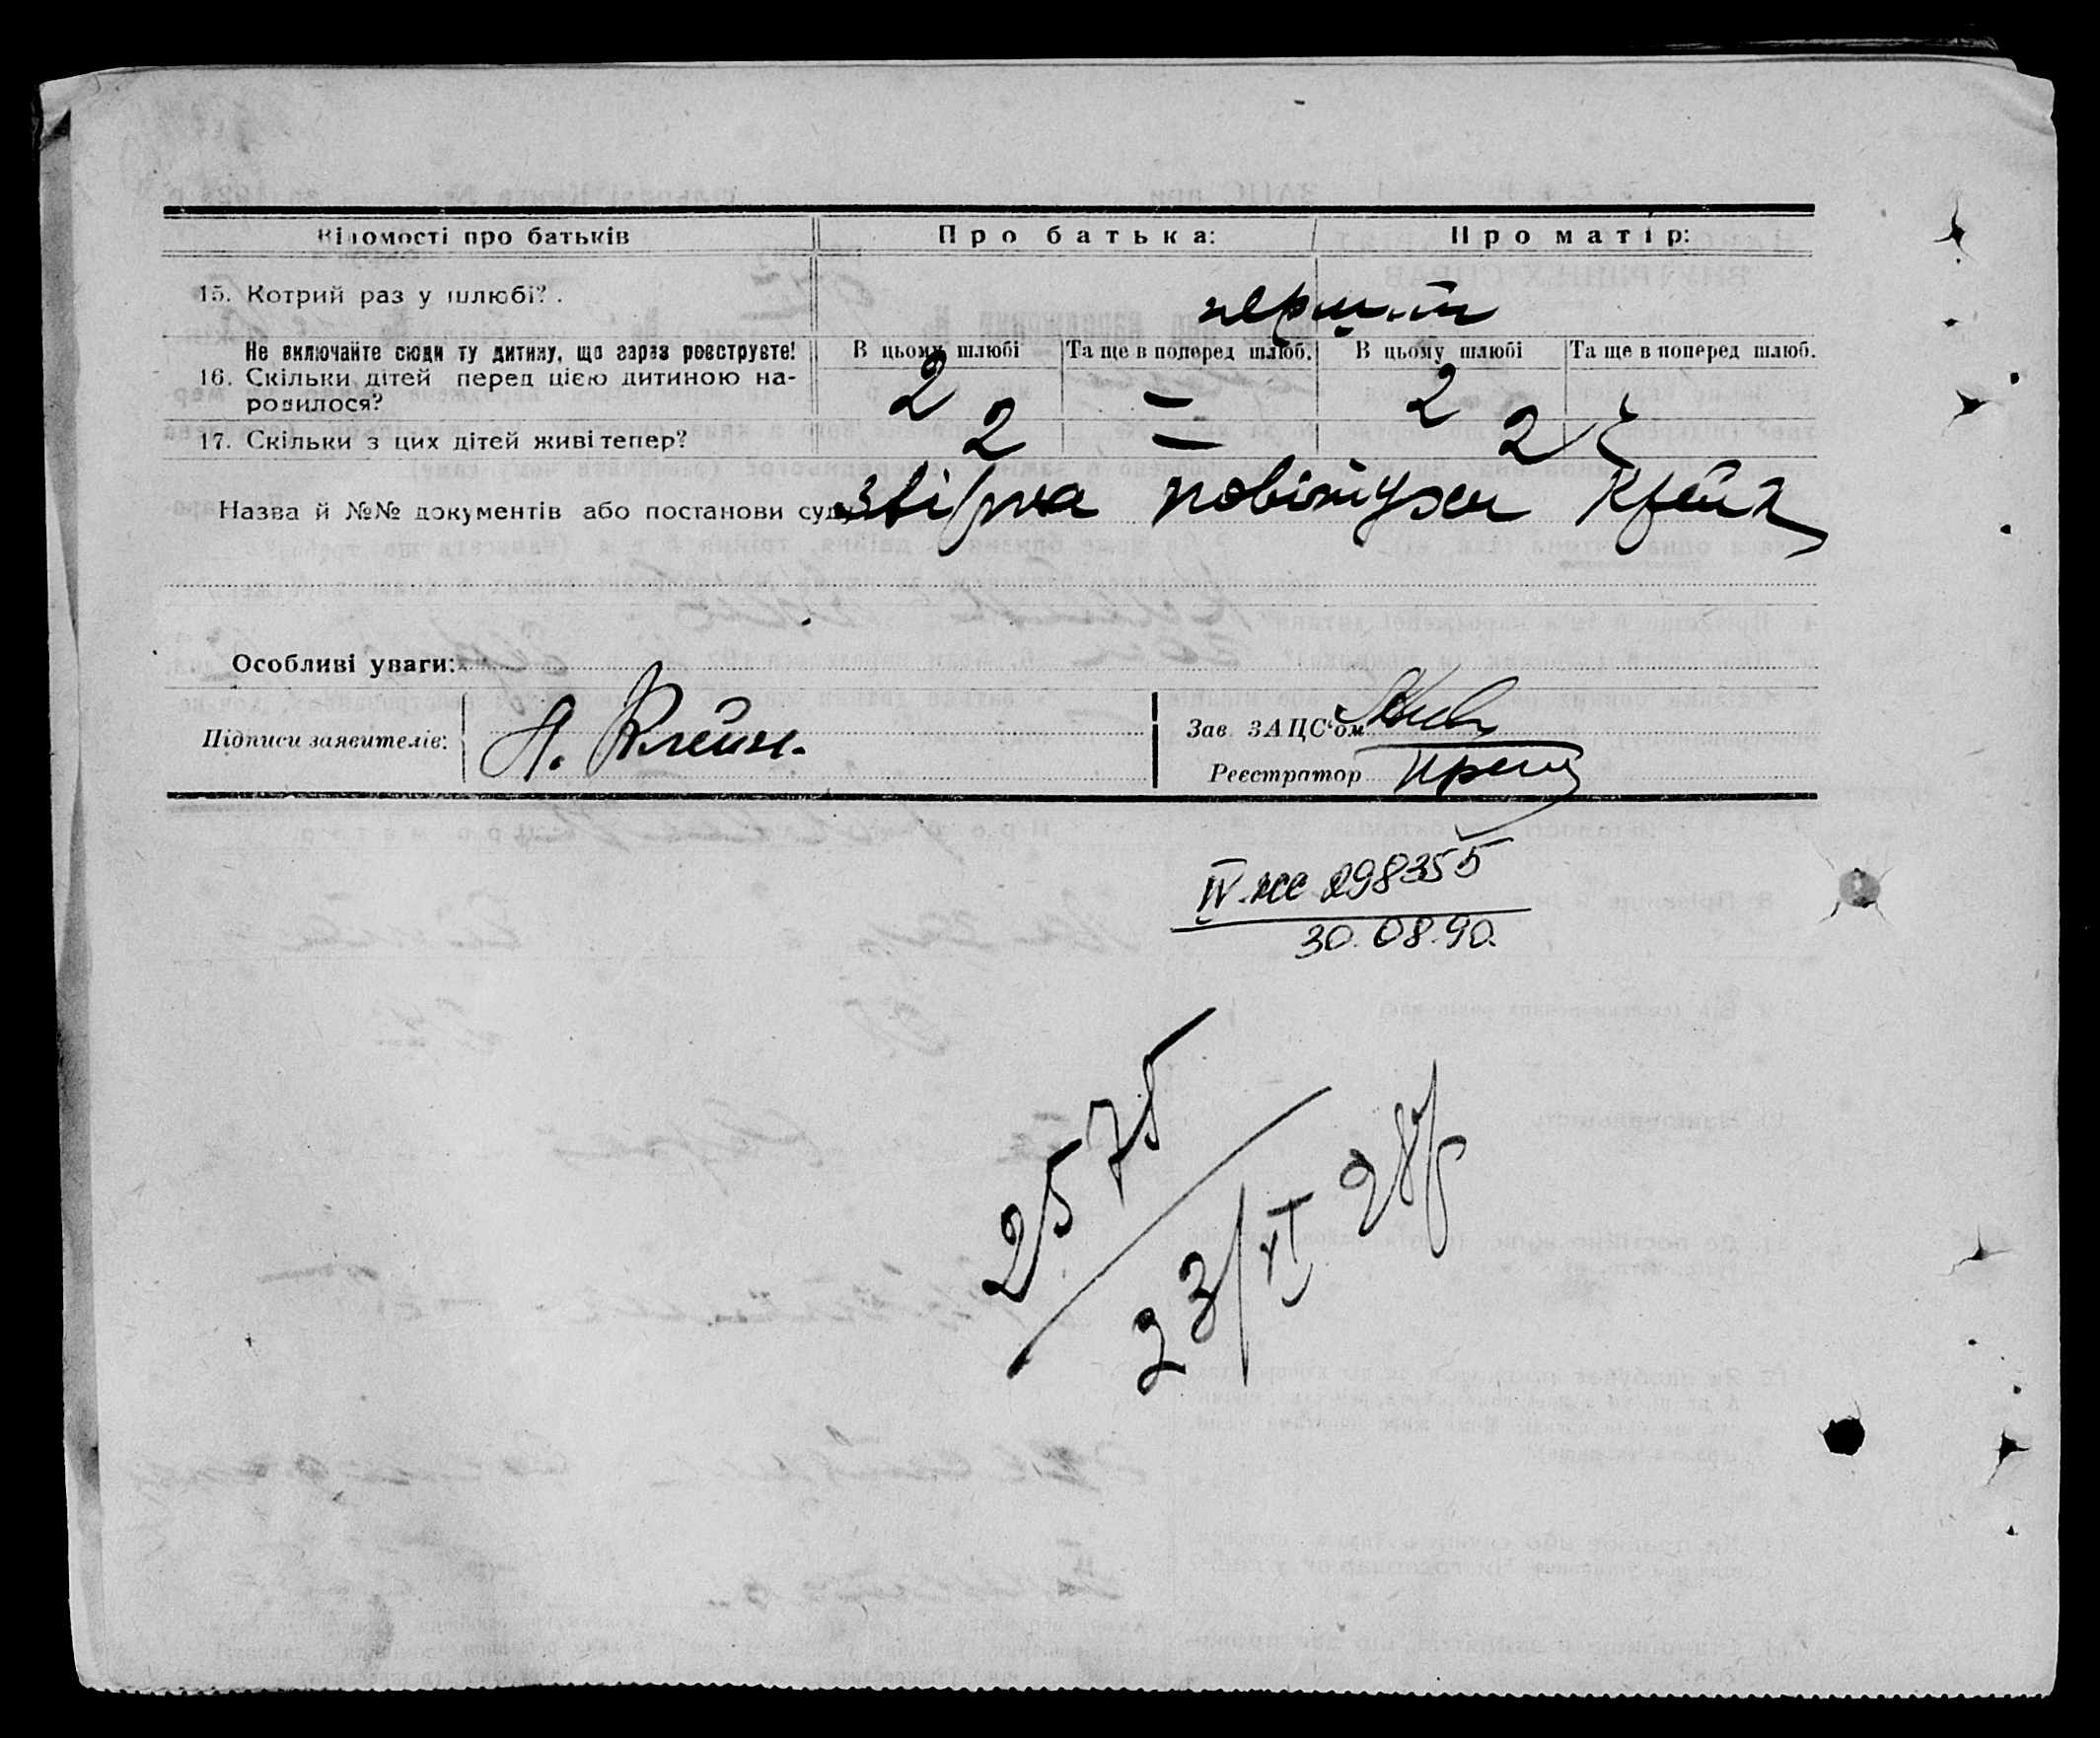 Відомості про батьків
Про батька:
Про матір:
15. Котрий раз у шлюбі?.
перший
Не включайте сюди ту дитину, що зараз реєструєте!
В цьому шлюбі
Та ще в поперед шлюб.
В цьому шлюбі
Та ще в поперед шлюб.
16. Скільки дітей перед цією дитиною на-
родилося?
2 = 2
17. Скільки з цих дітей живі тепер?
2 = 2
Назва й №№ документів або постанови суду
Особливі уваги:
Підписи заявителів:
А. Клейн.
Зав. ЗАЦС'ом
Реєстратор
IV-ЖС 298355
30.08.90.
2575
23/VI 28р